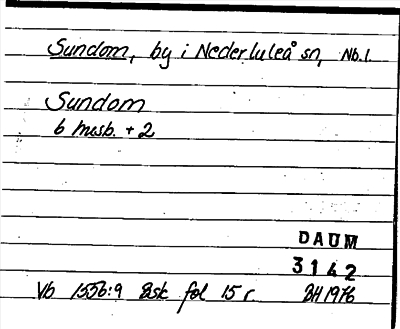 Sundom, by i Nederluleå sn, Nb.l.
Sundom
6 husb. + 2
DAUM
3142
Vb 1556:9 Bsk fol 15 r. BH 1976